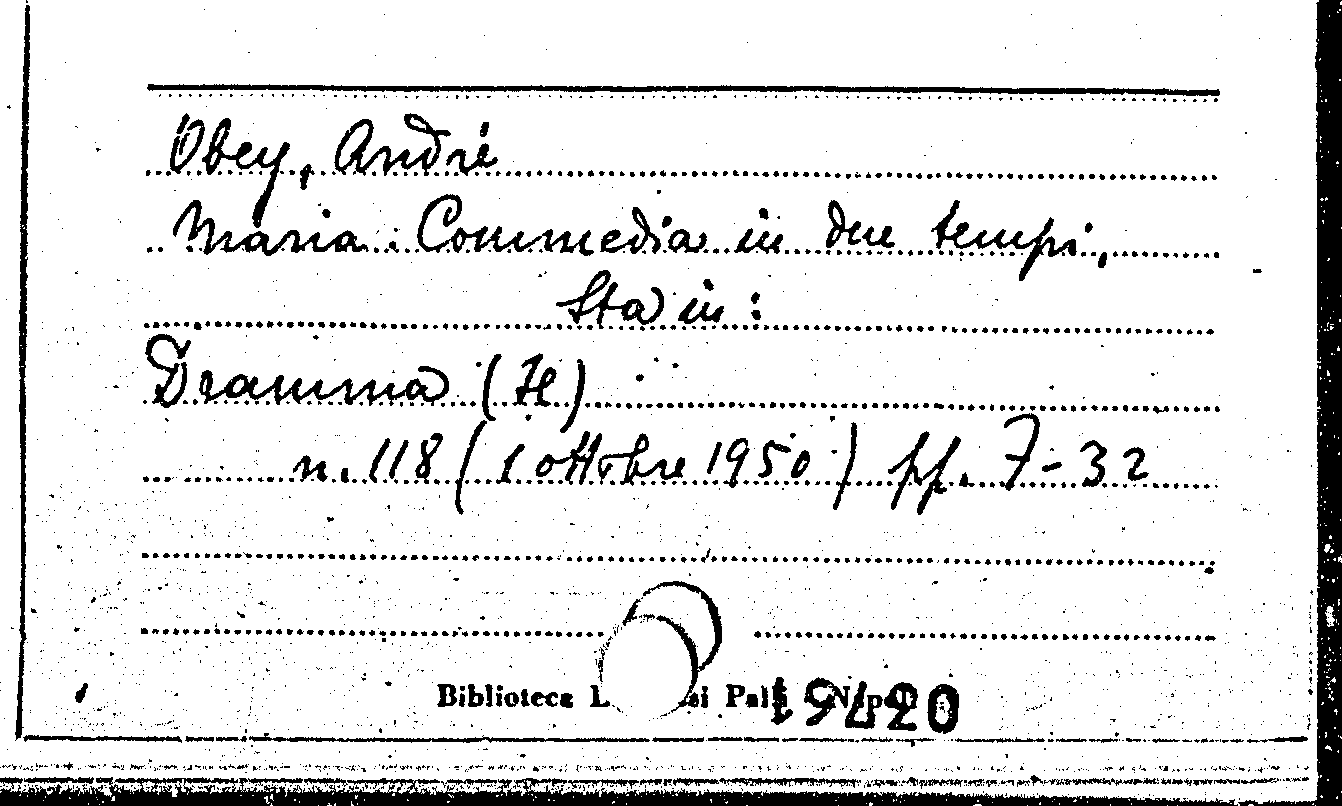 Obey, André
Maria. Commedia in due tempi,
Sta in:
Dramma (Il)
n. 118 (1 ottobre 1950) pp. 7-32
Biblioteca